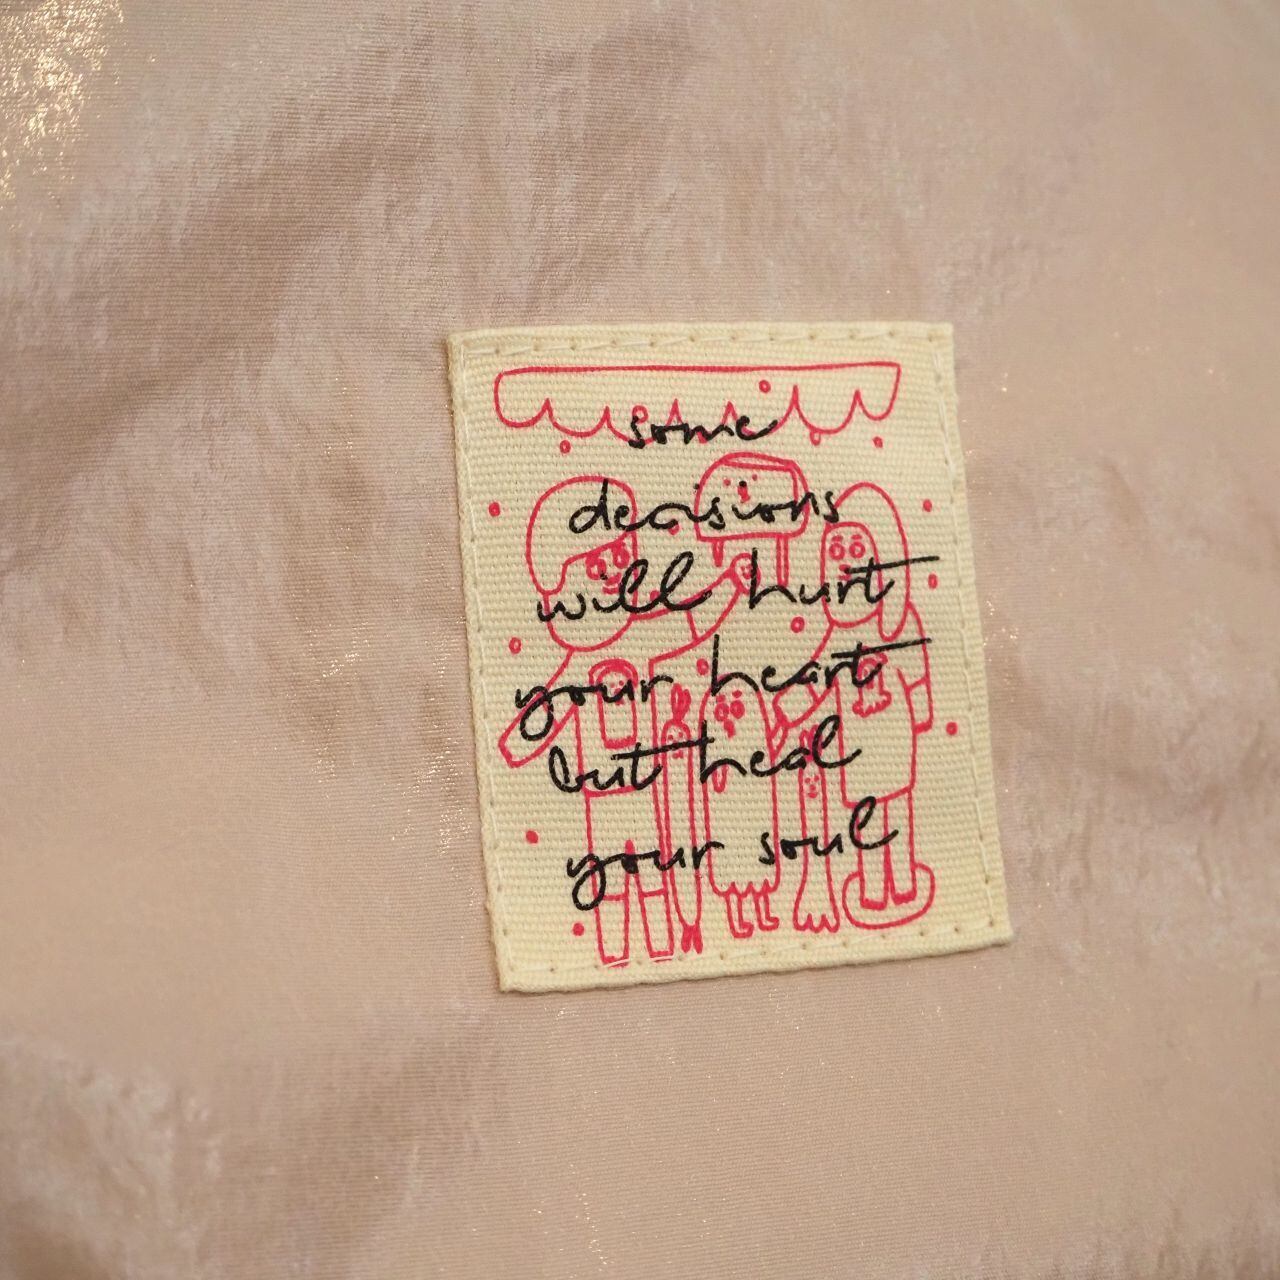 some
decisions
will hurt
your heart
but heal
your soul